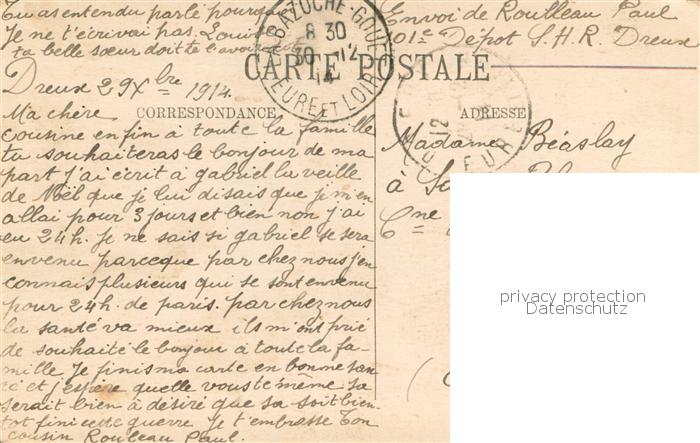 Tu as entendu parlé pourquoi
Je ne t'écrivai pas. Louise
ta belle sœur doit te l'avoir dit
Envoi de Roulleau Paul
101e Dépot S.H.R. Dreux
BAZOCHE-GOUET
8 30
30 -12
14
EURE ET LOIR
CARTE POSTALE
Dreux 29 Xbre 1914
CORRESPONDANCE
ADRESSE
Ma chère
cousine enfin à toute la famille
tu souhaiteras le bonjour de ma
part j'ai écrit à gabriel la veille
de Noël que je lui disais que je m'en
allai pour 3 jours et bien non j'ai
eu 24h. Je ne sais si gabriel se sera
envenu parceque par chez nous j'en
connais plusieurs qui se sont envenu
pour 24h. de paris. par chez nous
la santé va mieux ils m'ont prié
de souhaité le bonjour à toute la fa-
mille Je finis ma carte en bonne san
té et j'espère quelle vous te même sa
serait bien à désiré que sa soit bien-
tot fini cette guerre Je t'embrasse Ton
cousin Roulleau Paul.
Madame Béaslay
à
Cne
privacy protection
Datenschutz